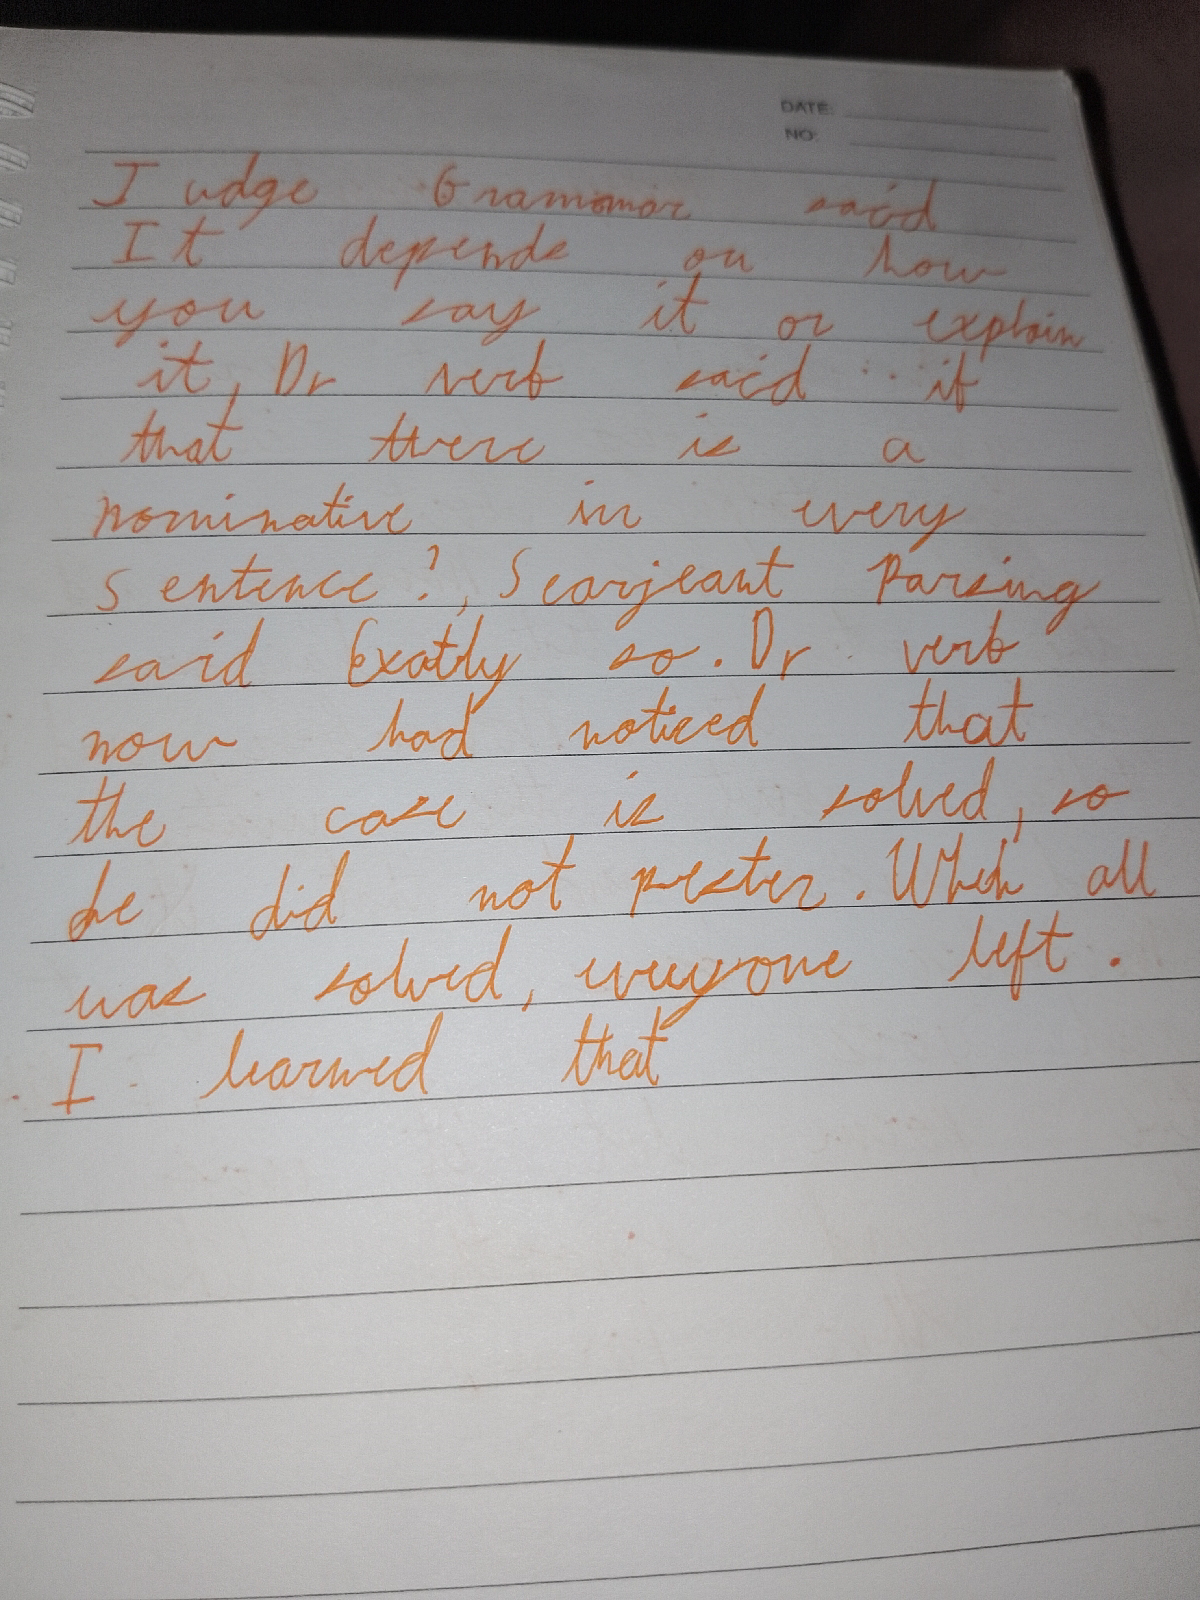 DATE:
NO:
Judge Grammar said
It depends on how
you say it or explain
it, Dr verb said if
that there is a
nominative in every
sentence?, Searjeant Parsing
said Exatly so. Dr verb
now had noticed that
the case is solved, so
he did not pester. When all
was solved, everyone left.
I learned that